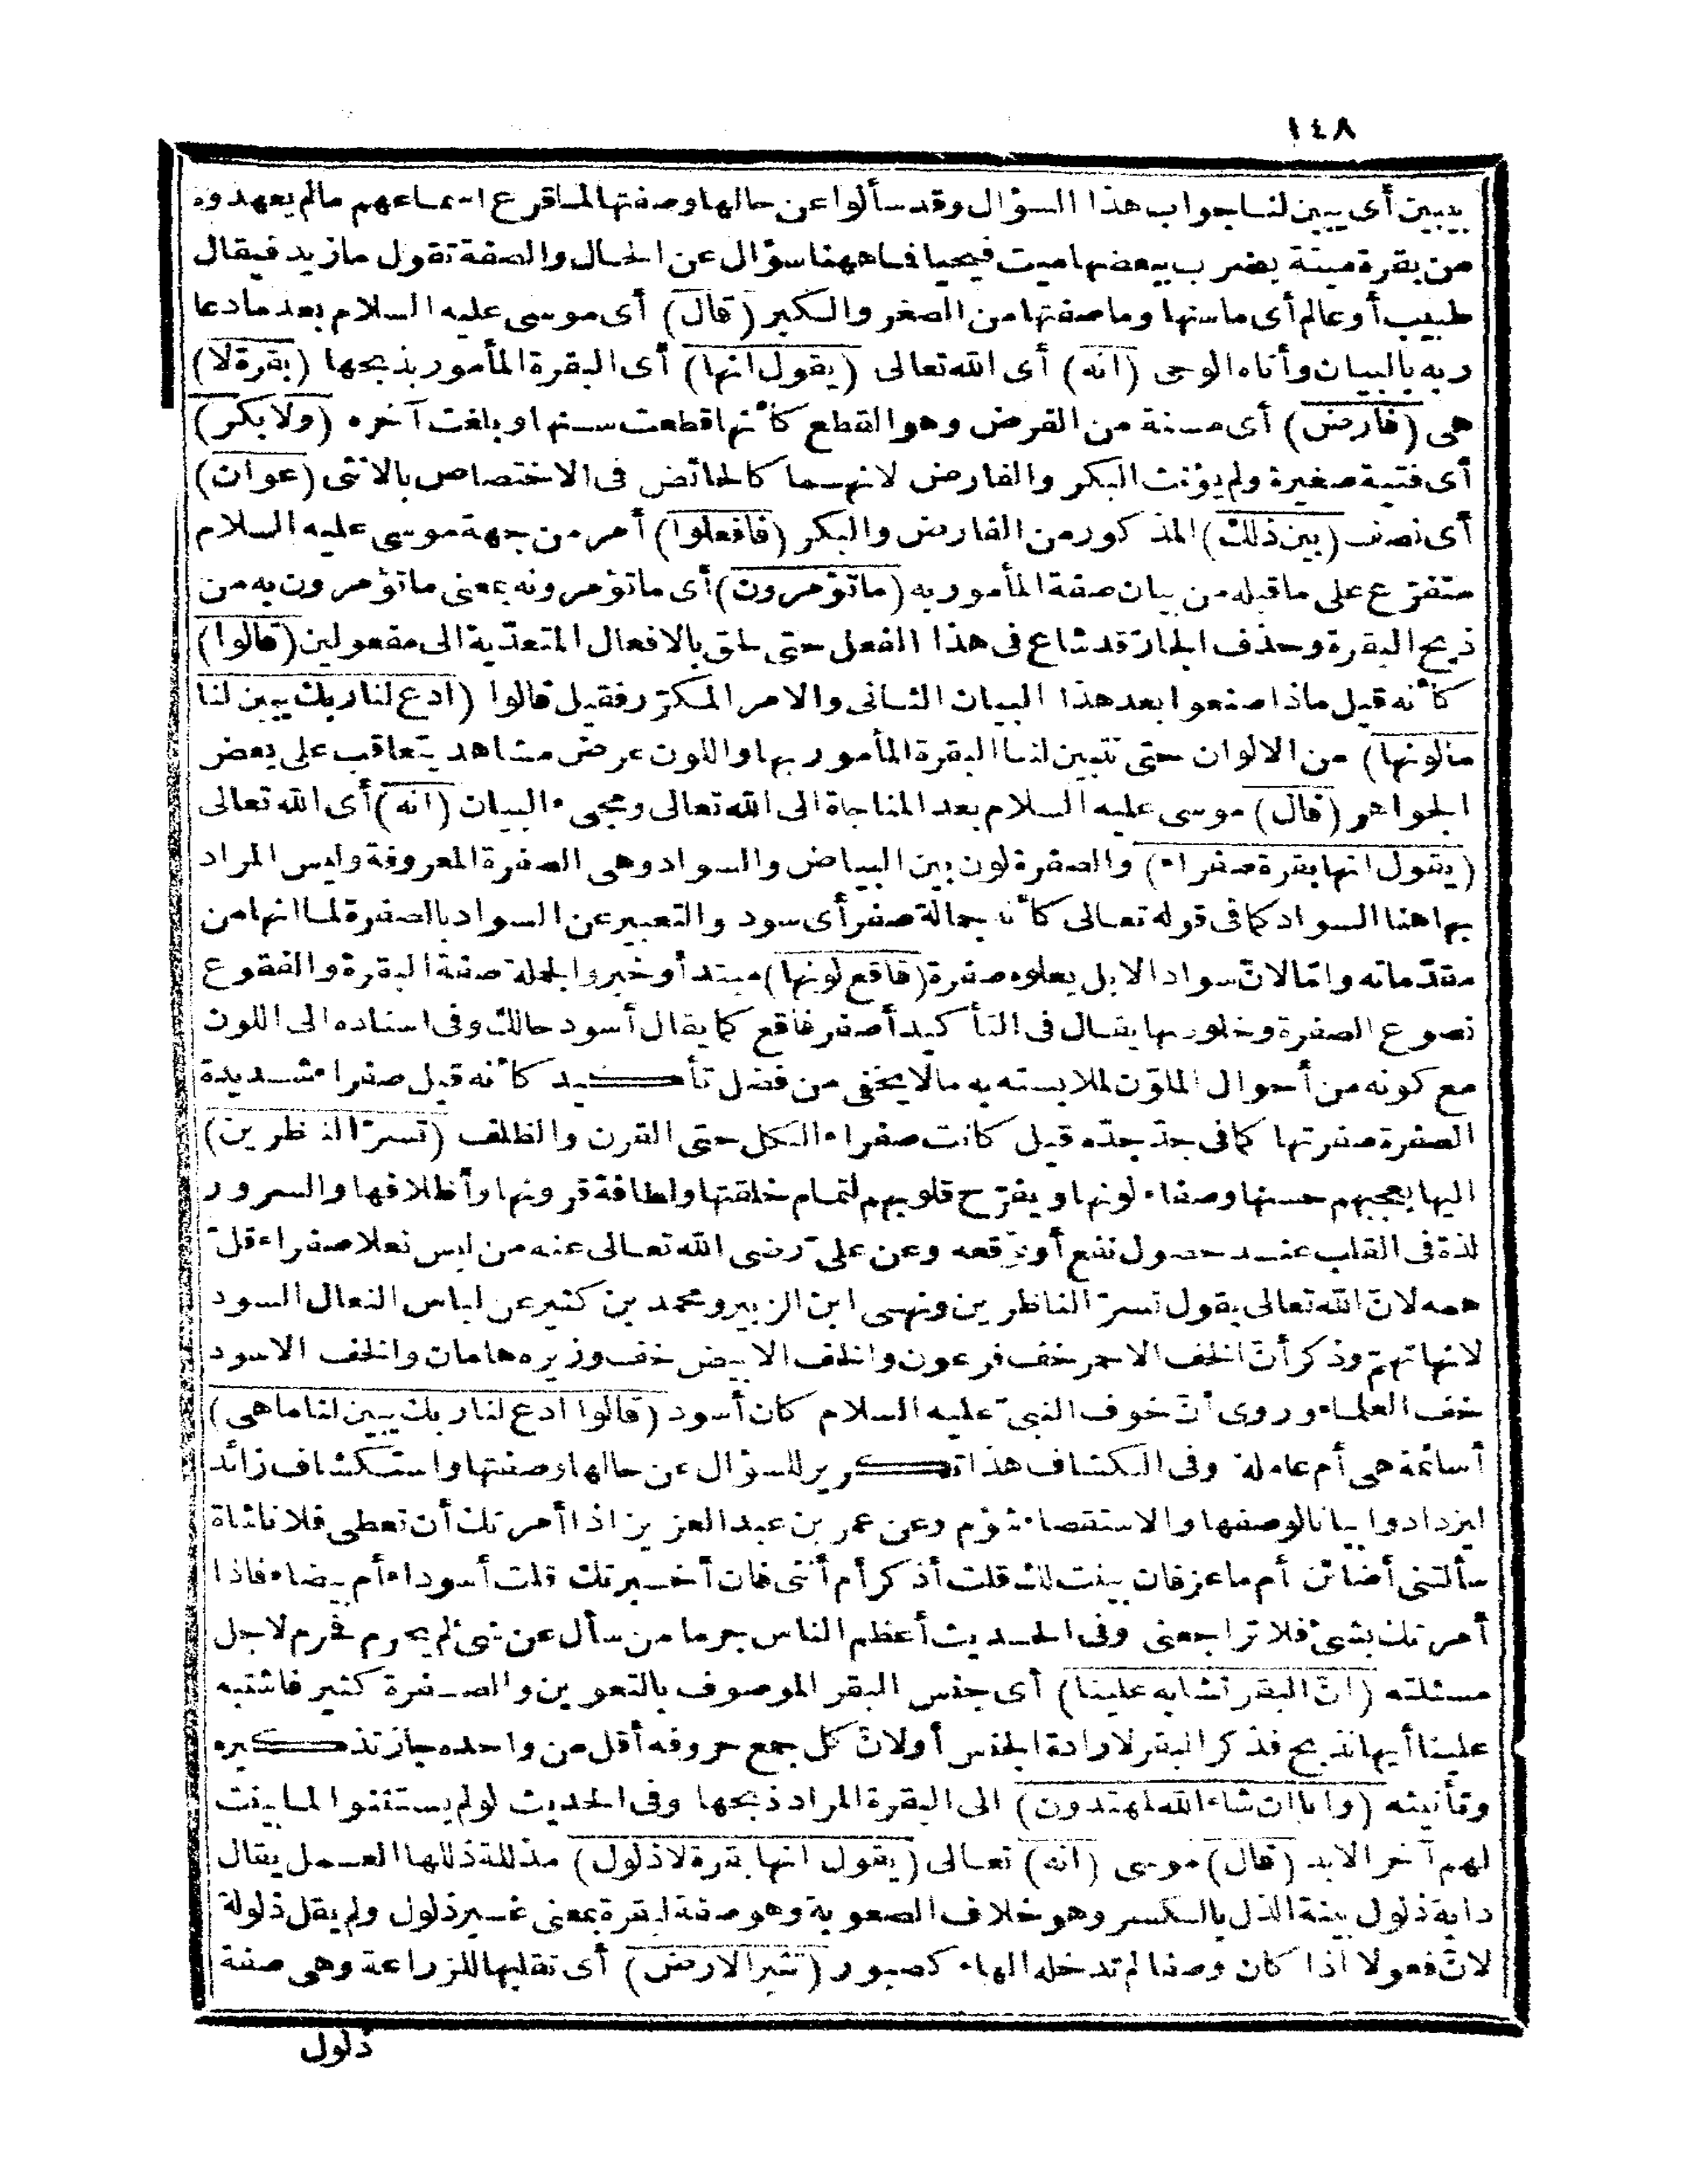 ١٤٨
يبين أى يبين لنا جواب هذا السؤال وقد سألوا عن حالها وصفتها لما قرع اسماعهم مالم يعهدوه
من بقرة ميتة يضرب ببعضها ميت فيحيا فما ههنا سؤال عن الحال والصفة تقول مازيد فيقال
طبيب أو عالم أى ماسنها وما صفتها من الصغر والكبر (قال) أى موسى عليه السلام بعد مادعا
ربه بالبيان وأتاه الوحى (انه) أى الله تعالى (يقول انها) أى البقرة المأمور بذبحها (بقرة لا)
هى (فارض) أى مسنة من الفرض وهو القطع كأنها قطعت سنها وبلغت آخره (ولا بكر)
أى فتية صغيرة ولم يؤنث البكر والفارض لانهما كالحائض فى الاختصاص بالانثى (عوان)
أى نصف (بين ذلك) المذكور من الفارض والبكر (فافعلوا) أمر من جهة موسى عليه السلام
متفرّع على ماقبله من بيان صفة المأمور به (ماتؤمرون) أى ماتؤمرونه بمعنى ماتؤمرون به من
ذبح البقرة وحذف الجارّ قد شاع فى هذا الفعل حتى لحق بالافعال المتعدّية الى مفعولين (قالوا)
كأنه قيل ماذا صنعوا بعد هذا البيان الثانى والامر المكرّر فقيل قالوا (ادع لنا ربك يبين لنا
مالونها) من الالوان حتى تتبين لنا البقرة المأمور بها واللون عرض مشاهد يتعاقب على بعض
الجواهر (قال) موسى عليه السلام بعد المناجاة الى الله تعالى ومجىء البيان (انه) أى الله تعالى
(يقول انها بقرة صفراء) والصفرة لون بين البياض والسواد وهى الصفرة المعروفة وليس المراد
بها هنا السواد كما فى قوله تعالى كأنه جمالة صفر أى سود والتعبير عن السواد بالصفرة لما انها من
مقدّماته وامّا لانّ سواد الابل يعلوه صفرة (فاقع لونها) مبتدأ وخبر والجملة صفة البقرة والفقوع
نصوع الصفرة وخلوصها يقال فى التأكيد أصفر فاقع كما يقال أسود حالك وفى اسناده الى اللون
مع كونه من أحوال الملوّن لملابسته به مالا يخفى من فضل تأكيد كأنه قيل صفراء شديدة
الصفرة صفرتها كما فى جدّ جدّه قيل كانت صفراء الكل حتى القرن والظلف (تسرّ الناظرين)
اليها يعجبهم حسنها وصفاء لونها ويفرّح قلوبهم لتمام خلقتها ولطافة قرونها وأظلافها والسرور
لذة فى القلب عند حصول نفع أو توقعه وعن علىّ رضى الله تعالى عنه من لبس نعلا صفراء قلّ
همه لانّ الله تعالى يقول تسرّ الناظرين ونهى ابن الزبير ومحمد بن كثير عن لباس النعال السود
لانها تهمّ وذكر أنّ الخف الاحمر خف فرعون والخف الابيض خف وزيره هامان والخف الاسود
خف العلماء وروى أنّ خوف النبىّ عليه السلام كان أسود (قالوا ادع لنا ربك يبين لنا ماهى)
أسائمة هى أم عاملة وفى الكشاف هذا تكرير للسؤال عن حالها وصفتها واستكشاف زائد
ليزدادوا بيانا لوصفها والاستقصاء شؤم وعن عمر بن عبد العزيز اذا أمرتك أن تعطى فلانا شاة
سألتنى أضائن أم ماعز فان بينت لك قلت أذكر أم أنثى فان أخبرتك قلت أسوداء أم بيضاء فاذا
أمرتك بشىء فلا تراجعنى وفى الحديث أعظم الناس جرما من سأل عن شىء لم يحرم فحرم لاجل
مسئلته (انّ البقر تشابه علينا) أى جنس البقر الموصوف بالتعوين والصفرة كثير فاشتبه
علينا أيها نذبح فذكر البقر لارادة الجنس أو لانّ كل جمع حروفه أقل من واحده جاز تذكيره
وتأنيثه (وانا ان شاء الله لمهتدون) الى البقرة المراد ذبحها وفى الحديث لو لم يستثنوا لما بينت
لهم آخر الابد (قال) موسى (انه) تعالى (يقول انها بقرة لا ذلول) مذللة ذللها العمل يقال
دابة ذلول بينة الذل بالكسر وهو خلاف الصعوبة وهو صفة لبقرة بمعنى غير ذلول ولم يقل ذلولة
لانّ فعولا اذا كان وصفا لم تدخله الهاء كصبور (تثير الارض) أى تقلبها للزراعة وهى صفة
ذلول